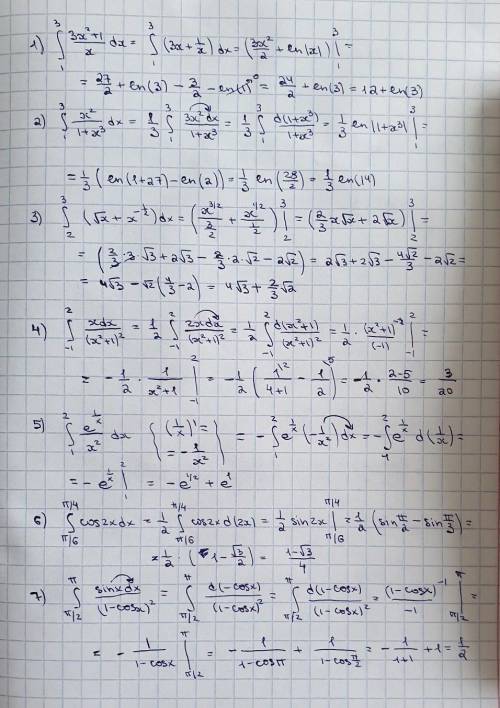 1) ∫₁³ (3x²+1)/x dx = ∫₁³ (3x + 1/x) dx = (3x²/2 + ln|x|) |₁³ =
= 27/2 + ln(3) - 3/2 - ln(1)^0 = 24/2 + ln(3) = 12 + ln(3)
2) ∫₁³ x²/(1+x³) dx = 1/3 ∫₁³ 3x²dx/(1+x³) = 1/3 ∫₁³ d(1+x³)/(1+x³) = 1/3 ln|1+x³| |₁³ =
= 1/3 (ln(1+27) - ln(2)) = 1/3 ln(28/2) = 1/3 ln(14)
3) ∫₂³ (√x + x^(-1/2)) dx = (x^(3/2)/(3/2) + x^(1/2)/(1/2)) |₂³ = (2/3 x√x + 2√x) |₂³ =
= (2/3 · 3 · √3 + 2√3 - 2/3 · 2 · √2 - 2√2) = 2√3 + 2√3 - 4√2/3 - 2√2 =
= 4√3 - √2 (4/3 - 2) = 4√3 + 2/3 √2
4) ∫₋₁² xdx/(x²+1)² = 1/2 ∫₋₁² 2xdx/(x²+1)² = 1/2 ∫₋₁² d(x²+1)/(x²+1)² = 1/2 · (x²+1)/(-1) |₋₁² =
= - 1/2 · 1/(x²+1) |₋₁² = - 1/2 (1^(\2)/(4+1) - 1^(\5)/2) = - 1/2 · (2-5)/10 = 3/20
5) ∫₁² e^(1/x)/x² dx { (1/x)' = = - 1/x² } = - ∫₁² e^(1/x) (- 1/x²) dx = - ∫₁² e^(1/x) d(1/x) =
= - e^(1/x) |₁² = - e^(1/2) + e^1
6) ∫_(π/6)^(π/4) cos2xdx = 1/2 ∫_(π/6)^(π/4) cos2x d(2x) = 1/2 sin2x |_(π/6)^(π/4) = 1/2 (sin π/2 - sin π/3) =
= 1/2 · (1 - √3/2) = (1-√3)/4
7) ∫_(π/2)^π sinxdx/(1-cosx)² = ∫_(π/2)^π d(-cosx)/(1-cosx)² = ∫_(π/2)^π d(1-cosx)/(1-cosx)² = (1-cosx)^(-1)/(-1) |_(π/2)^π =
= - 1/(1-cosx) |_(π/2)^π = - 1/(1-cosπ) + 1/(1-cos π/2) = - 1/(1+1) + 1 = 1/2